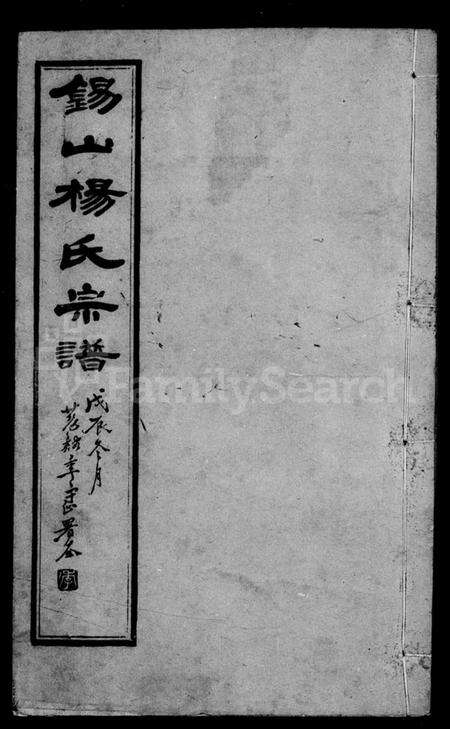 錫山楊氏宗譜
戊辰冬月
李 署
FamilySearch